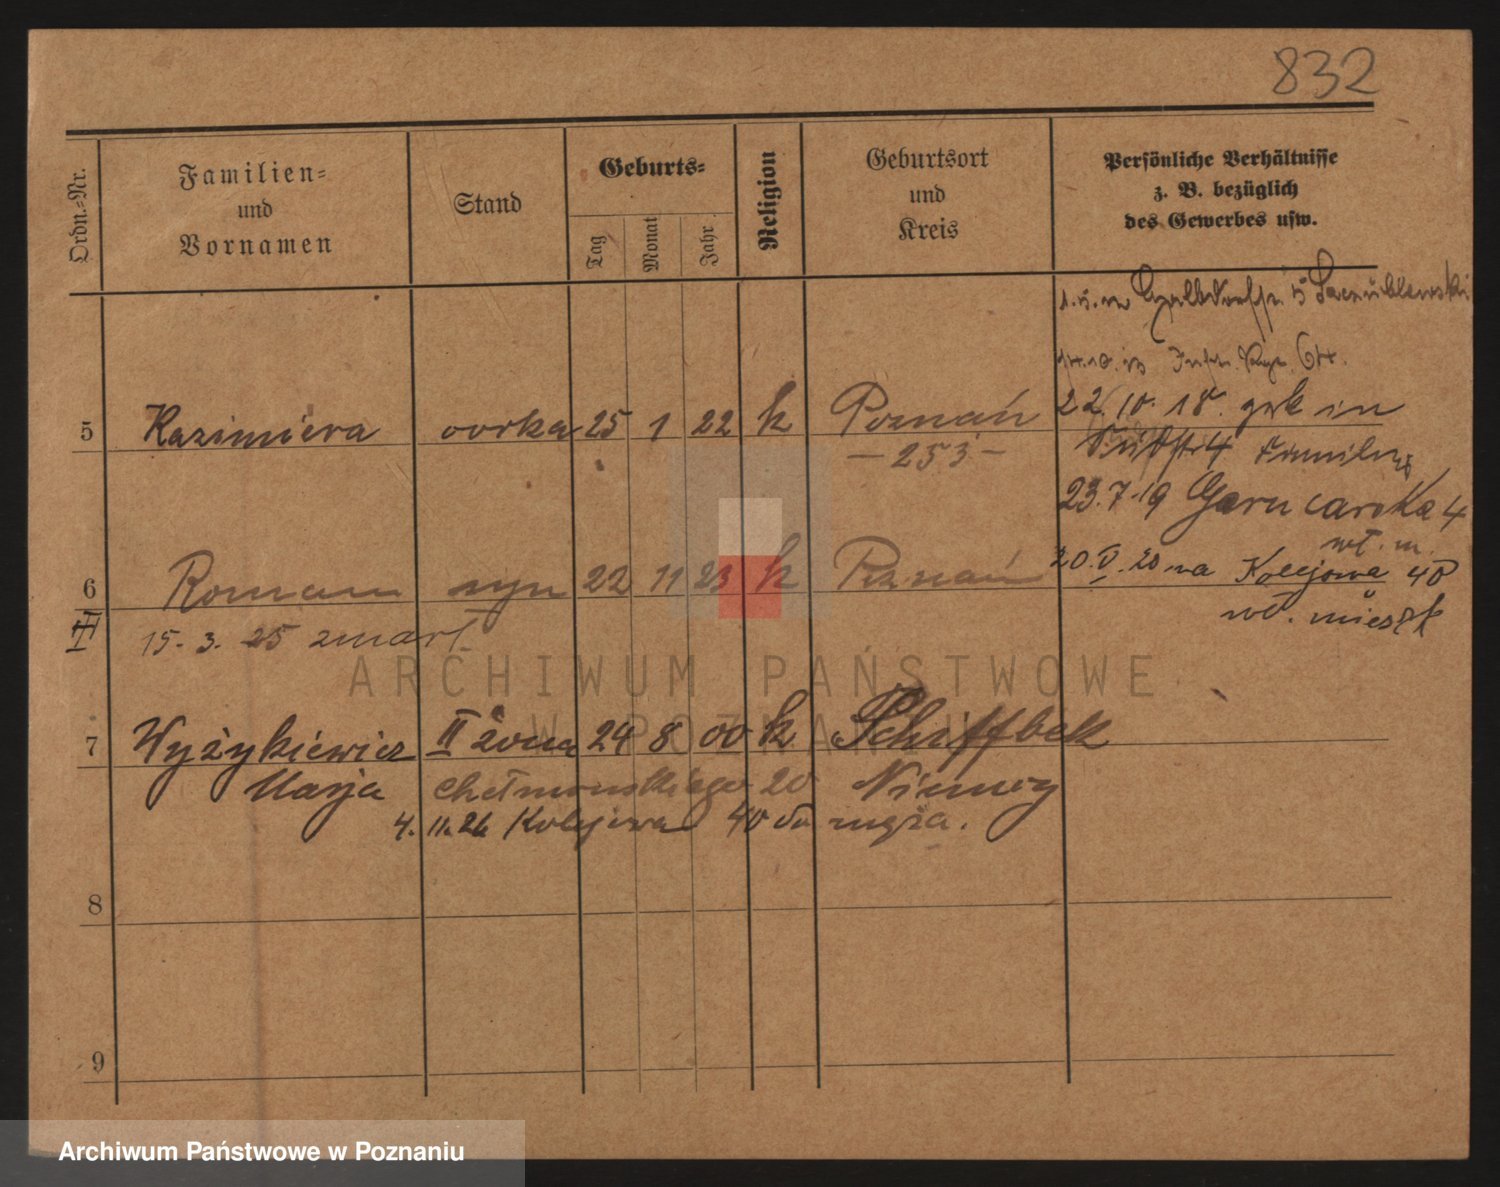 832
Ordn.-Nr.
Familien-
und
Vornamen
Stand
Geburts-
Tag
Monat
Jahr
Religion
Geburtsort
und
Kreis
Persönliche Verhältnisse
z. B. bezüglich
des Gewerbes usw.
5 Kazimiera 25 1 22 k Poznań
22.10.18.
- 253 -
23.7.19 Garncarska 4
wł. m.
6 Roman syn 22 11 23 k Poznań 20.V.20 na Kolejowa 40
wł. mieszk
III 15. 3. 25 zmarł
ARCHIWUM PAŃSTWOWE
W POZNANIU
7 Wyżykiewicz II żona 24 8 00 k Schiffbek
Marja Chełmońskiego 20 Niemcy
4. 11. 26 Kolejowa 40 do męża.
8
9
Archiwum Państwowe w Poznaniu